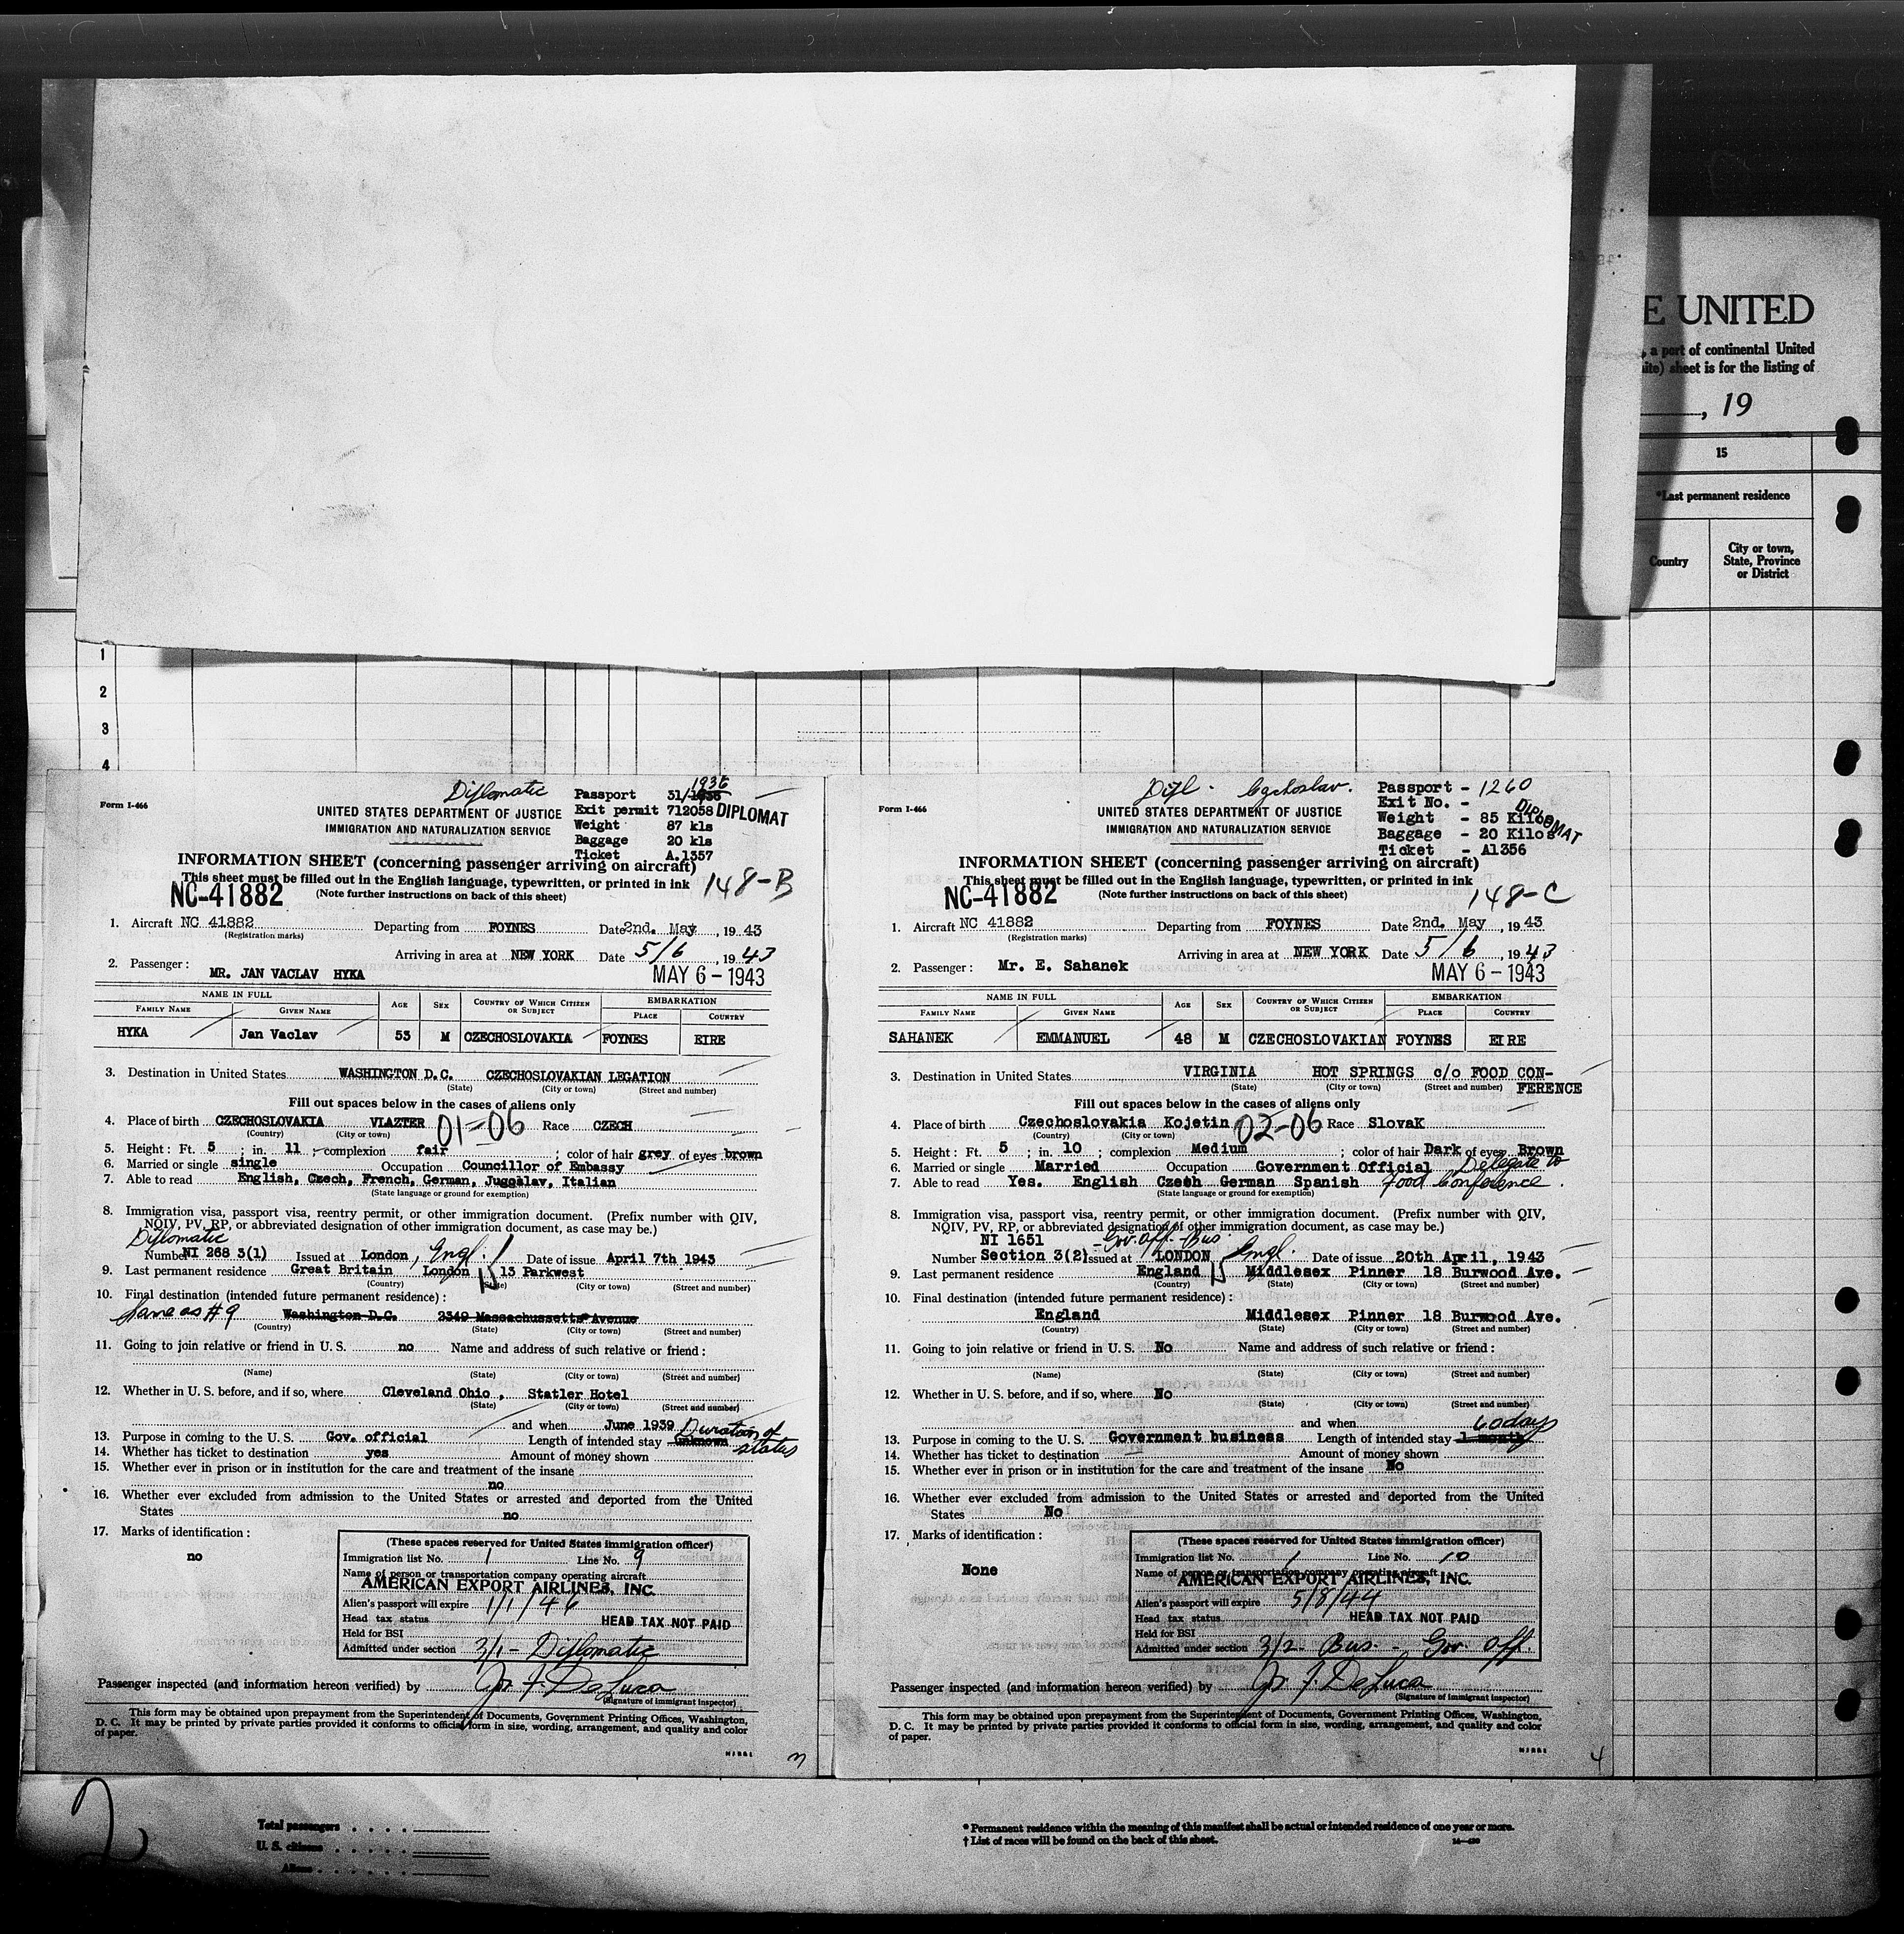 E UNITED
, a port of continental United
ite) sheet is for the listing of
, 19
15
*Last permanent residence
Country
City or town,
State, Province
or District
1
2
3
4
Form I-466
Diplomatic
UNITED STATES DEPARTMENT OF JUSTICE
IMMIGRATION AND NATURALIZATION SERVICE
1936
Passport 31/1936
Exit permit 712058 DIPLOMAT
Weight 87 kls
Baggage 20 kls
Ticket A.1357
INFORMATION SHEET (concerning passenger arriving on aircraft)
This sheet must be filled out in the English language, typewritten, or printed in ink
148-B
NC-41882
(Note further instructions on back of this sheet)
1. Aircraft NC 41882 Departing from FOYNES Date 2nd. May , 19 43
(Registration marks)
Arriving in area at NEW YORK Date 5/6 , 19 43
2. Passenger : MR. JAN VACLAV HYKA MAY 6 - 1943
NAME IN FULL AGE SEX COUNTRY OF WHICH CITIZEN OR SUBJECT EMBARKATION
FAMILY NAME GIVEN NAME PLACE COUNTRY
HYKA Jan Vaclav 53 M CZECHOSLOVAKIA FOYNES EIRE
3. Destination in United States WASHINGTON D.C. CZECHOSLOVAKIAN LEGATION
(State) (City or town) (Street and number)
Fill out spaces below in the cases of aliens only
4. Place of birth CZECHOSLOVAKIA VLAZTER 01-06 Race CZECH
(Country) (City or town)
5. Height: Ft. 5 ; in. 11 ; complexion fair ; color of hair grey of eyes brown
6. Married or single single Occupation Councillor of Embassy
7. Able to read English, Czech, French, German, Jugoslav, Italian
(State language or ground for exemption)
8. Immigration visa, passport visa, reentry permit, or other immigration document. (Prefix number with QIV,
NQIV, PV, RP, or abbreviated designation of other immigration document, as case may be.)
Diplomatic
Number NI 268 3(1) Issued at London , Engl. Date of issue April 7th 1943
9. Last permanent residence Great Britain London 13 Parkwest
(Country) (State) (City or town) (Street and number)
10. Final destination (intended future permanent residence) :
Same as #9 Washington D.C. 2349 Massachussetts Avenue
(Country) (State) (City or town) (Street and number)
11. Going to join relative or friend in U. S. no Name and address of such relative or friend :
(Name) (State) (City or town) (Street and number)
12. Whether in U. S. before, and if so, where Cleveland Ohio , Statler Hotel
(State) (City or town) (Street and number)
and when June 1939
13. Purpose in coming to the U. S. Gov. official Length of intended stay unknown Duration of status
14. Whether has ticket to destination yes Amount of money shown
15. Whether ever in prison or in institution for the care and treatment of the insane
no
16. Whether ever excluded from admission to the United States or arrested and deported from the United
States no
17. Marks of identification :
no
(These spaces reserved for United States immigration officer)
Immigration list No. 1 Line No. 9
Name of person or transportation company operating aircraft
AMERICAN EXPORT AIRLINES, INC.
Alien's passport will expire 1/1/46
Head tax status HEAD TAX NOT PAID
Held for BSI
Admitted under section 3/1 - Diplomatic
Passenger inspected (and information hereon verified) by Jos. F. DeLuca
(Signature of immigrant inspector)
This form may be obtained upon prepayment from the Superintendent of Documents, Government Printing Offices, Washington,
D. C. It may be printed by private parties provided it conforms to official form in size, wording, arrangement, and quality and color
of paper.
Form I-466
Dipl. Czchoslav.
UNITED STATES DEPARTMENT OF JUSTICE
IMMIGRATION AND NATURALIZATION SERVICE
Passport - 1260
Exit No. -
Weight - 85 Kilos
Baggage - 20 Kilos
Ticket - A1356
DIPLOMAT
INFORMATION SHEET (concerning passenger arriving on aircraft)
This sheet must be filled out in the English language, typewritten, or printed in ink
148-C
NC-41882
(Note further instructions on back of this sheet)
1. Aircraft NC 41882 Departing from FOYNES Date 2nd. May , 19 43
(Registration marks)
Arriving in area at NEW YORK Date 5/6 , 19 43
2. Passenger : Mr. E. Sahanek MAY 6 - 1943
NAME IN FULL AGE SEX COUNTRY OF WHICH CITIZEN OR SUBJECT EMBARKATION
FAMILY NAME GIVEN NAME PLACE COUNTRY
SAHANEK EMMANUEL 48 M CZECHOSLOVAKIAN FOYNES EIRE
3. Destination in United States VIRGINIA HOT SPRINGS c/o FOOD CON-
FERENCE
(State) (City or town) (Street and number)
Fill out spaces below in the cases of aliens only
4. Place of birth Czechoslovakia Kojetin 02-06 Race SlovaK
(Country) (City or town)
5. Height: Ft. 5 ; in. 10 ; complexion Medium ; color of hair Dark of eyes Brown
6. Married or single Married Occupation Government Official Delegate to
7. Able to read Yes. English Czech German Spanish Food Conference.
(State language or ground for exemption)
8. Immigration visa, passport visa, reentry permit, or other immigration document. (Prefix number with QIV,
NQIV, PV, RP, or abbreviated designation of other immigration document, as case may be.)
NI 1651 - Gov. Off. - Bus.
Number Section 3(2) Issued at LONDON Engl. Date of issue 20th April, 1943
9. Last permanent residence England Middlesex Pinner 18 Burwood Ave.
(Country) (State) (City or town) (Street and number)
10. Final destination (intended future permanent residence) :
England Middlesex Pinner 18 Burwood Ave.
(Country) (State) (City or town) (Street and number)
11. Going to join relative or friend in U. S. No Name and address of such relative or friend :
(Name) (State) (City or town) (Street and number)
12. Whether in U. S. before, and if so, where No
(State) (City or town) (Street and number)
and when
13. Purpose in coming to the U. S. Government business Length of intended stay 1 month 60 days
14. Whether has ticket to destination Amount of money shown
15. Whether ever in prison or in institution for the care and treatment of the insane No
16. Whether ever excluded from admission to the United States or arrested and deported from the United
States No
17. Marks of identification :
None
(These spaces reserved for United States immigration officer)
Immigration list No. 1 Line No. 10
Name of person or transportation company operating aircraft
AMERICAN EXPORT AIRLINES, INC.
Alien's passport will expire 5/8/44
Head tax status HEAD TAX NOT PAID
Held for BSI
Admitted under section 3/2 - Bus. - Gov. Off.
Passenger inspected (and information hereon verified) by Jos. F. DeLuca
(Signature of immigrant inspector)
This form may be obtained upon prepayment from the Superintendent of Documents, Government Printing Offices, Washington,
D. C. It may be printed by private parties provided it conforms to official form in size, wording, arrangement, and quality and color
of paper.
4
2
Total passengers
U. S. citizens
Aliens
* Permanent residence within the meaning of this manifest shall be actual or intended residence of one year or more.
† List of races will be found on the back of this sheet.